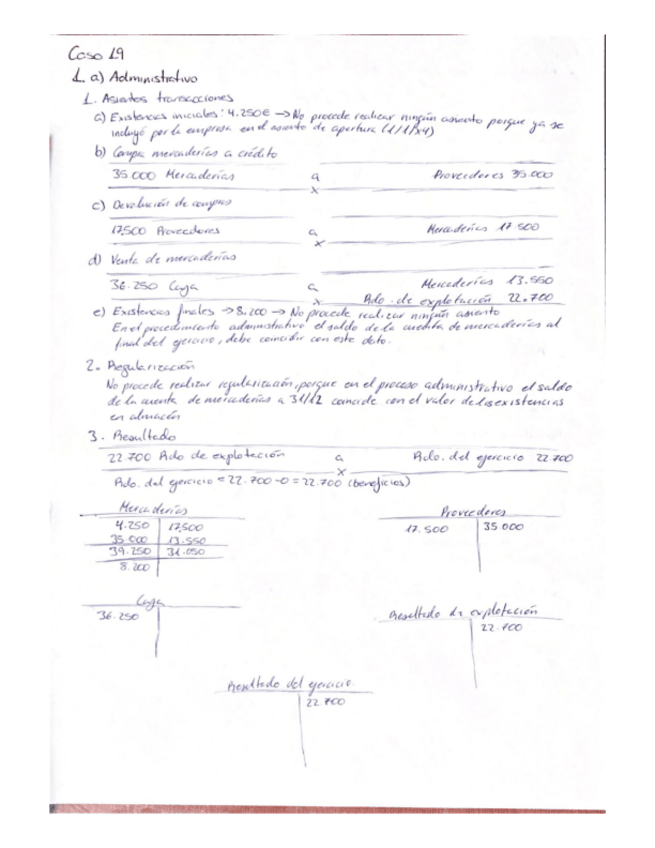 Caso 19
1. a) Administrativo
1. Asientos transacciones
a) Existencias iniciales: 4.250€ → No procede realizar ningún asiento porque ya se
incluyó por la empresa en el asiento de apertura (1/1/X4)
b) Compra mercaderías a crédito
35.000 Mercaderías a Proveedores 35.000
x
c) Devolución de compras
17.500 Proveedores a Mercaderías 17.500
x
d) Venta de mercaderías
36.250 Caja a Mercaderías 13.550
x Rdo. de explotación 22.700
e) Existencias finales → 8.200 → No procede realizar ningún asiento
En el procedimiento administrativo el saldo de la cuenta de mercaderías al
final del ejercicio, debe coincidir con este dato.
2. Regularización
No procede realizar regularización, porque en el proceso administrativo el saldo
de la cuenta de mercaderías a 31/12 coincide con el valor de las existencias
en almacén
3. Resultado
22.700 Rdo de explotación a Rdo. del ejercicio 22.700
x
Rdo. del ejercicio = 22.700 - 0 = 22.700 (beneficios)
Mercaderías
4.250 17.500
35.000 13.550
39.250 31.050
8.200
Proveedores
17.500 35.000
Caja
36.250
Resultado de explotación
22.700
Resultado del ejercicio
22.700